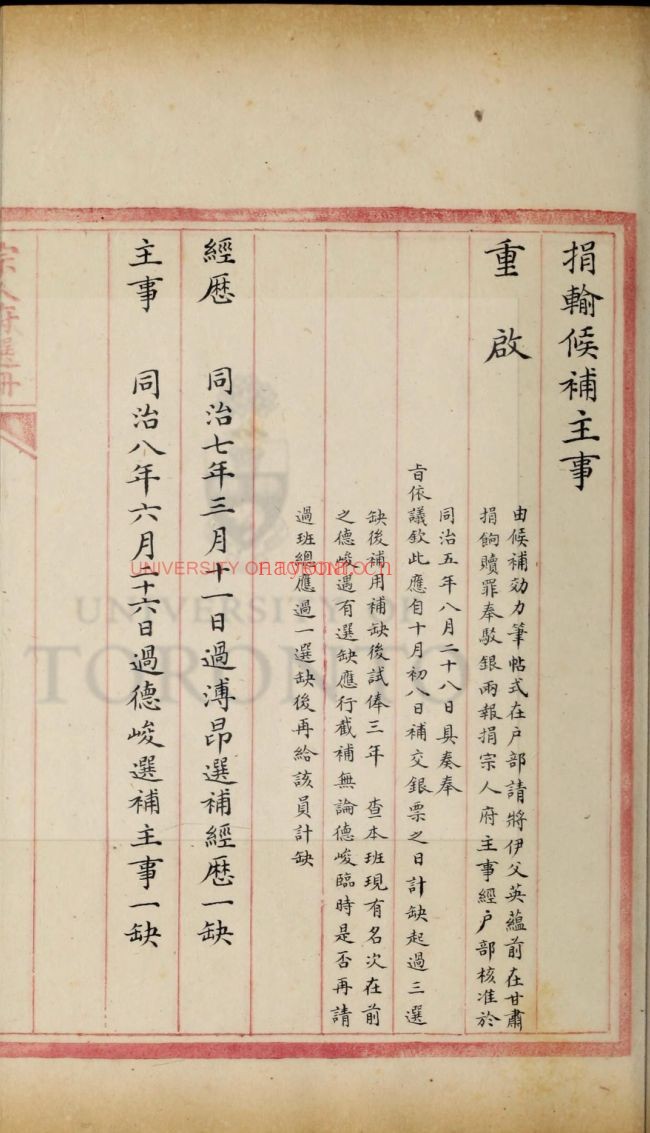 捐輸候補主事
重啟
由候補効力筆帖式在户部請將伊父英蘊前在甘肅
捐餉贖罪奉駁銀兩報捐宗人府主事經户部核准於
同治五年八月二十八日具奏奉
旨依議欽此應自十月初八日補交銀票之日計缺起過三選
缺後補用補缺後試俸三年 查本班現有名次在前
之德峻遇有選缺應行截補無論德峻臨時是否再請
過班總應過一選缺後再給該員計缺
經歷 同治七年三月十一日過溥昂選補經歷一缺
主事 同治八年六月二十六日過德峻選補主事一缺
宗人府選冊
UNIVERSITY OF TORONTO
UNIVERSITY OF
TORONTO